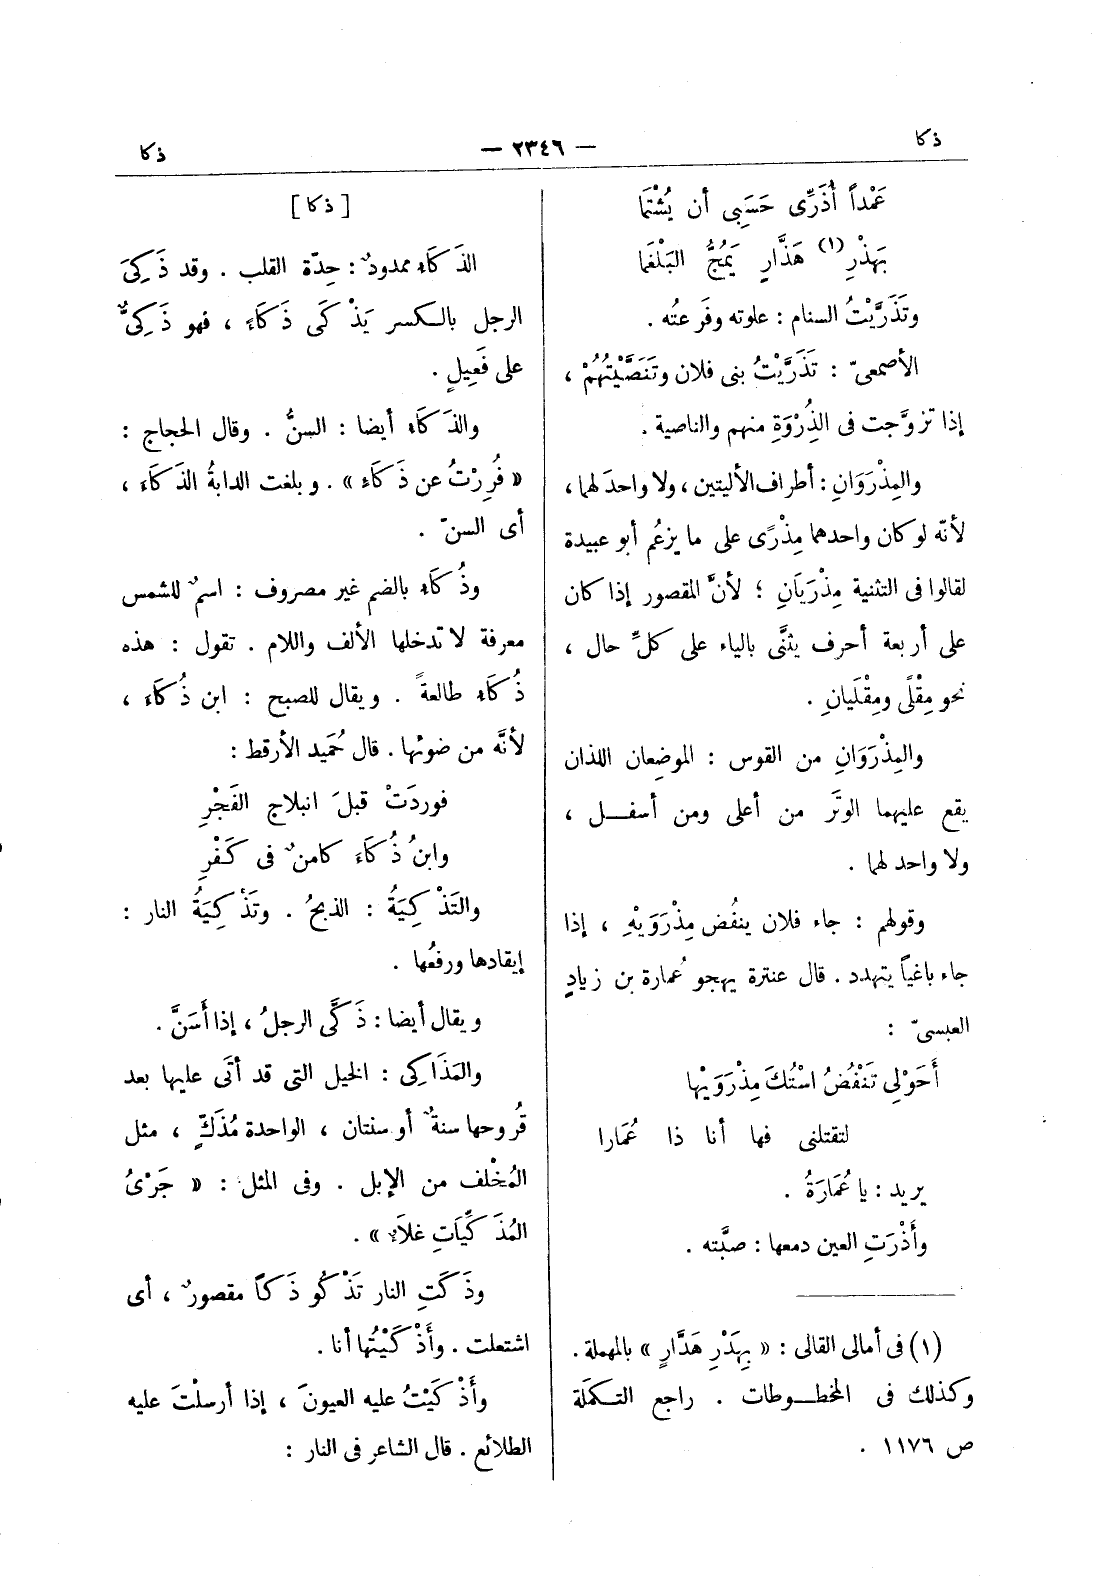 ذكا
— ٢٣٤٦ —
ذكا
عَمْداً أُذَرِّى حَسَبِى أن يُشْتَمَا
بَهذْرِ (١) هَذَّارٍ يَمُجُّ البَلْغَمَا
وتَذَرَّيْتُ السنام : علوته وفَرعتُه .
الأصمعىّ : تَذَرَّيْتُ بنى فلان وتَنَصَّيْتُهُمْ ،
إذا تزوَّجت فى الذِرْوَةِ منهم والناصية .
والمِذْرَوَانِ : أطراف الأليتين ، ولا واحدَ لهما ،
لأنّه لو كان واحدهما مِذْرًى على ما يزعُم أبو عبيدة
لقالوا فى التثنية مِذْرَيَانِ ؛ لأنَّ المقصور إذا كان
على أربعة أحرف يثنَّى بالياء على كلِّ حال ،
نحو مِقْلًى ومِقْلَيانِ .
والمِذْرَوَانِ من القوس : الموضِعان اللذان
يقع عليهما الوتَر من أعلى ومن أسفـــل ،
ولا واحد لهما .
وقولهم : جاء فلان ينفُض مِذْرَوَيْهِ ، إذا
جاء باغياً يتهدد . قال عنترة يهجو عُمارة بن زيادٍ
العبسىّ :
أَحَوْلِى تَنْفُضُ اسْتُكَ مِذْرَوَيْها
لتقتلنى فها أنا ذا عُمَارا
يريد : يا عُمَارَةُ .
وأَذْرَتِ العين دمعها : صبَّته .
(١) فى أمالى القالى : « بِهَدْرِ هَدَّارٍ » بالمهملة .
وكذلك فى المخطــوطات . راجع التـكملة
ص ١١٧٦ .
[ ذكا ]
الذَكَاء ممدودٌ : حِدّة القلب . وقد ذَكِىَ
الرجل بالـكسر يَذْكَى ذَكَاءً ، فهو ذَكِىٌّ
على فَعِيلٍ .
والذَكَاء أيضا : السنُّ . وقال الحجاج :
« فُرِرْتُ عن ذَكَاءٍ » . وبلغت الدابةُ الذَكَاء ،
أى السنّ .
وذُكَاء بالضم غير مصروف : اسمٌ للشمس
معرفة لا تدخلها الألف واللام . تقول : هذه
ذُكَاء طالعةً . ويقال للصبح : ابن ذُكَاء ،
لأنَّه من ضوئها . قال حُمَيد الأرقط :
فوردَتْ قبلَ انبلاج الفَجْرِ
وابنُ ذُكَاء كامنٌ فى كَفْرِ
والتَذْكِيَةُ : الذبحُ . وتَذْكِيَةُ النار :
إيقادها ورفعُها .
ويقال أيضا : ذَكَّى الرجلُ ، إذا أَسَنَّ .
والمَذَاكِى : الخيل التى قد أتَى عليها بعد
قُروحها سنةٌ أو سنتان ، الواحدة مُذَكٍّ ، مثل
المُخْلف من الإبل . وفى المثل : « جَرْىُ
المُذَكِّيَاتِ غلاءٌ » .
وذَكَتِ النار تَذْكُو ذَكاً مقصورٌ ، أى
اشتعلت . وأَذْكَيْتُها أنا .
وأَذْكَيْتُ عليه العيونَ ، إذا أرسلْتَ عليه
الطلائع . قال الشاعر فى النار :